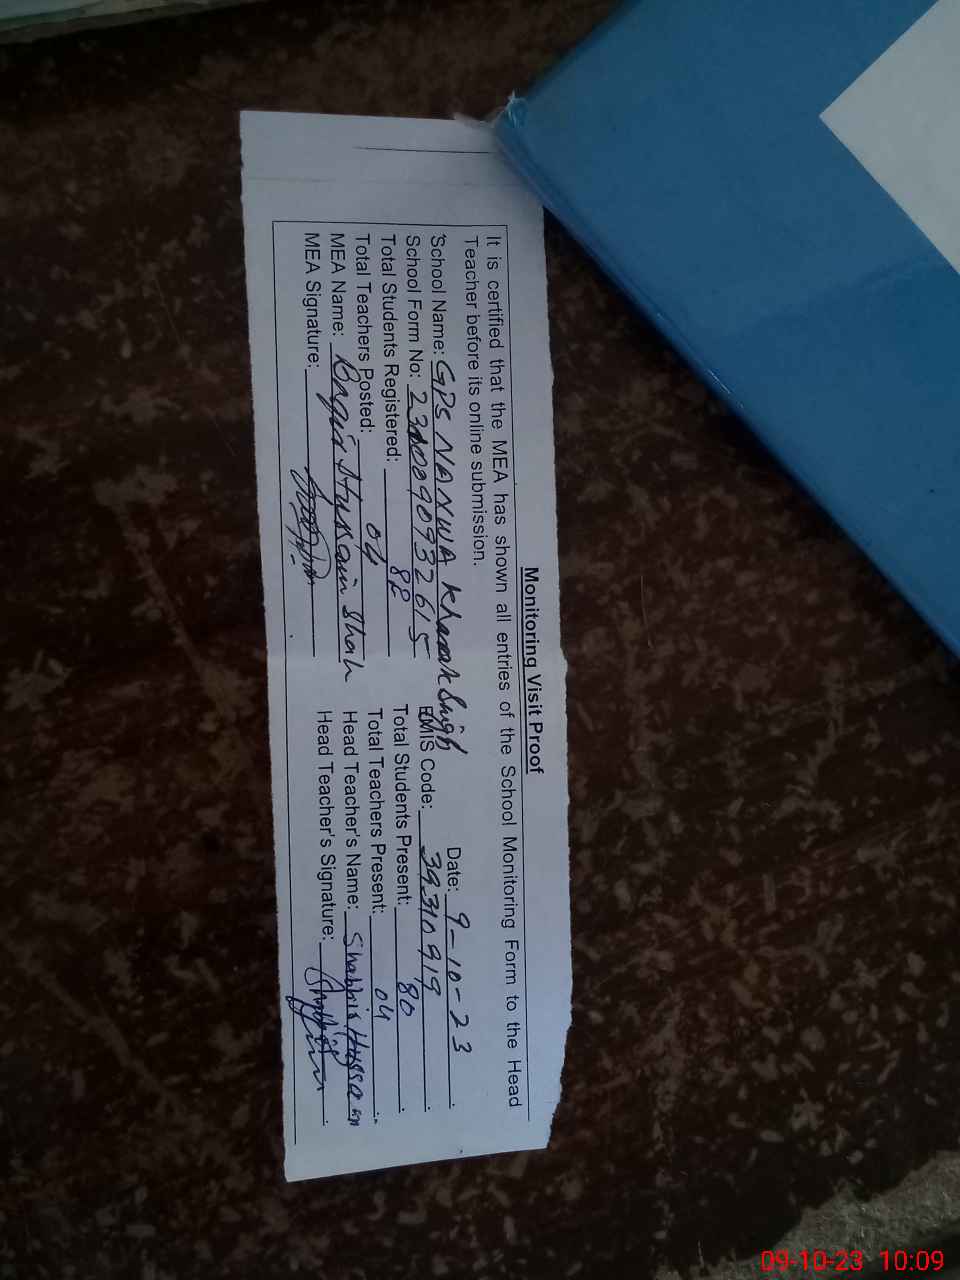 Monitoring Visit Proof
It is certified that the MEA has shown all entries of the School Monitoring Form to the Head
Teacher before its online submission.
Date: 9-10-23
School Name: GPS NANWA Kharak Singh
School Form No: EMIS Code: 39310919
Total Students Registered: 82 Total Students Present: 80
Total Teachers Posted: 04 Total Teachers Present: 04
MEA Name: Baqir Hussain Shah Head Teacher's Name: Shabbir Hussain
MEA Signature: Head Teacher's Signature:
09-10-23 10:09